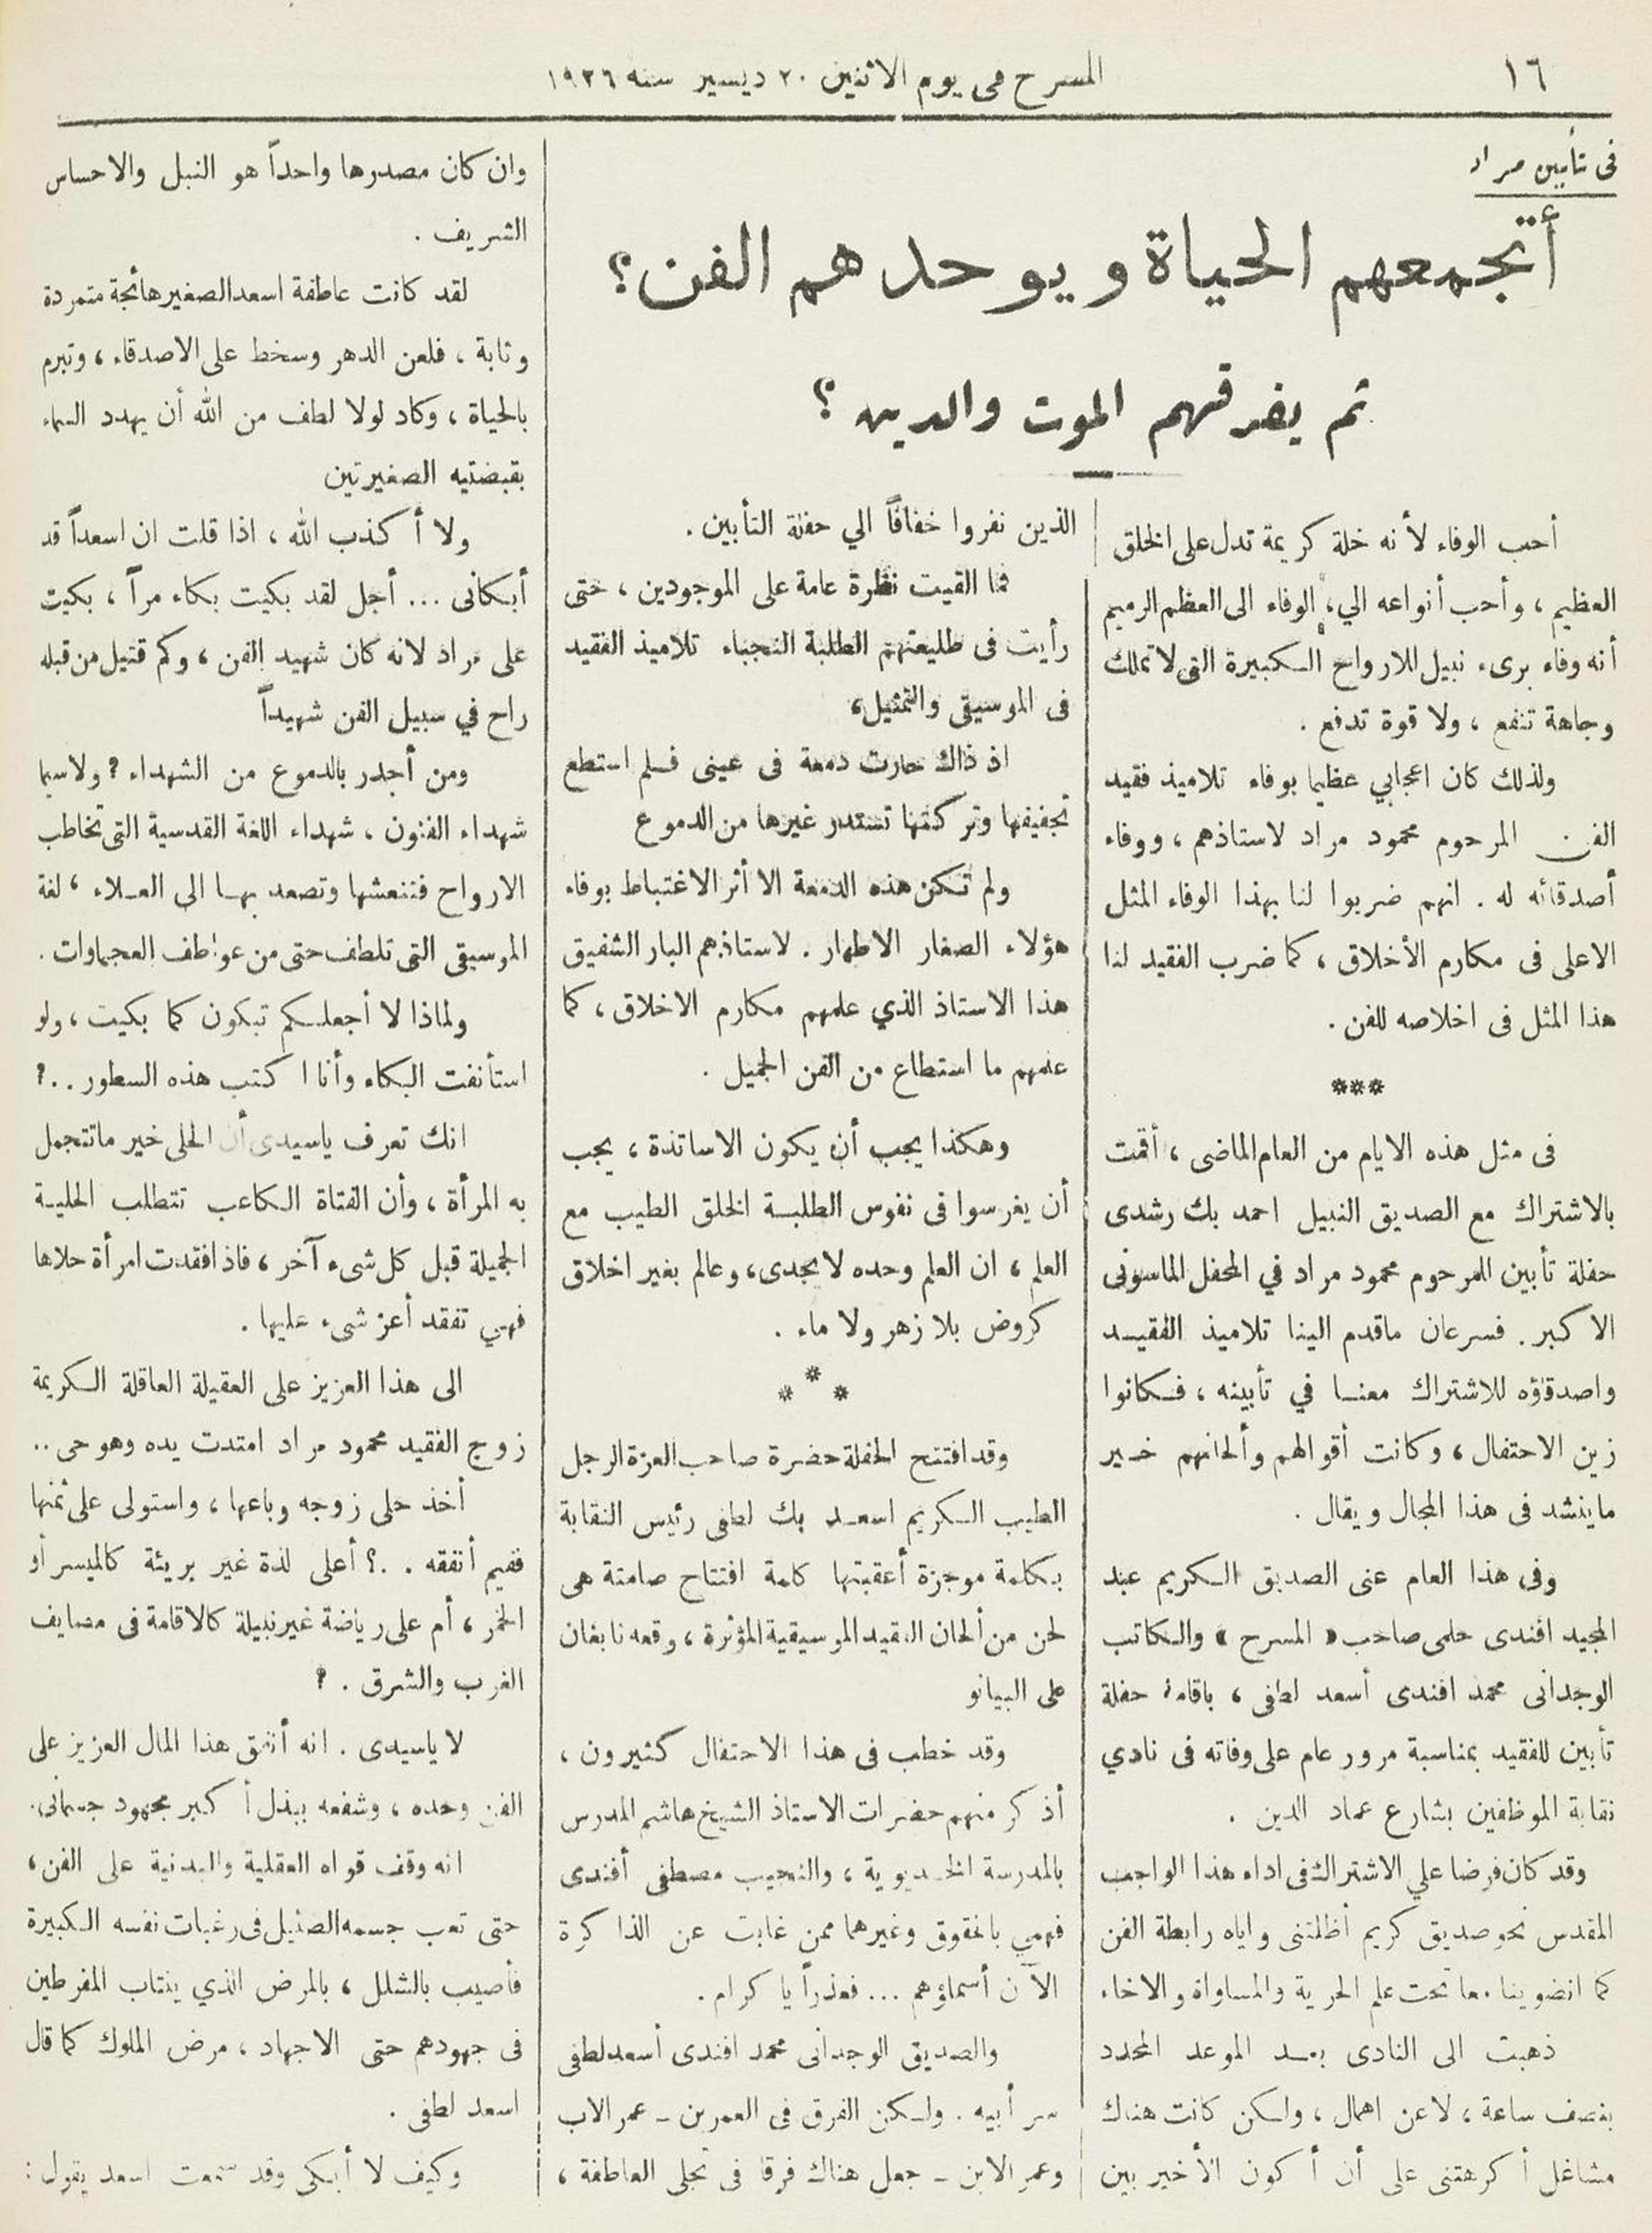 ١٦
المسرح فى يوم الاثنين ٢٠ ديسمبر سنه ١٩٢٦
فى تأبين مراد
أتجمعهم الحياة ويوحدهم الفن؟
ثم يفرقهم الموت والدين ؟
أحب الوفاء لأنه خلة كريمة تدل على الخلق
العظيم ، وأحب أنواعه الي، الوفاء الى العظم الرميم
أنه وفاء برىء نبيل للارواح الكبيرة التى لا تملك
وجاهة تنفع ، ولا قوة تدفع .
ولذلك كان اعجابي عظيما بوفاء تلاميذ فقيد
الفن المرحوم محمود مراد لاستاذهم ، ووفاء
أصدقائه له . انهم ضربوا لنا بهذا الوفاء المثل
الاعلى فى مكارم الأخلاق ، كما ضرب الفقيد لنا
هذا المثل فى اخلاصه للفن .
***
فى مثل هذه الايام من العام الماضى ، أقمت
بالاشتراك مع الصديق النبيل احمد بك رشدى
حفلة تأبين للمرحوم محمود مراد في المحفل الماسونى
الاكبر . فسرعان ماقدم الينا تلاميذ الفقيد
واصدقاؤه للاشتراك معنا في تأبينه ، فكانوا
زين الاحتفال ، وكانت أقوالهم وألحانهم خير
ماينشد فى هذا المجال ويقال .
وفى هذا العام عنى الصديق الكريم عبد
المجيد افندى حلمى صاحب « المسرح » والكاتب
الوجدانى محمد افندى أسعد لطفى ، باقامة حفلة
تأبين للفقيد بمناسبة مرور عام على وفاته فى نادي
نقابة الموظفين بشارع عماد الدين .
وقد كان فرضا علي الاشتراك فى اداء هذا الواجب
المقدس نحو صديق كريم أظلتنى واياه رابطة الفن
كما انضوينا معا تحت علم الحرية والمساواة والاخاء
ذهبت الى النادى بعد الموعد المحدد
بنصف ساعة ، لا عن اهمال ، ولكن كانت هناك
مشاغل أكرهتنى على أن أكون الأخير بين
الذين نفروا خفافاً الي حفلة التأبين .
فما القيت نظرة عامة على الموجودين ، حتى
رأيت فى طليعتهم الطلبة النجباء تلاميذ الفقيد
فى الموسيقى والتمثيل،
اذ ذاك حارت دمعة فى عينى فلم استطع
تجفيفها وتركتها تستدر غيرها من الدموع
ولم تكن هذه الدمعة الا أثر الاغتباط بوفاء
هؤلاء الصغار الاطهار . لاستاذهم البار الشفيق
هذا الاستاذ الذي علمهم مكارم الاخلاق ، كما
علمهم ما استطاع من الفن الجميل .
وهكذا يجب أن يكون الاساتذة ، يجب
أن يغرسوا فى نفوس الطلبة الخلق الطيب مع
العلم ، ان العلم وحده لا يجدى، وعالم بغير اخلاق
كروض بلا زهر ولا ماء .
* * *
وقد افتتح الحفلة حضرة صاحب العزة الرجل
الطيب الكريم اسعد بك لطفى رئيس النقابة
بكلمة موجزة أعقبتها كلمة افتتاح صامتة هى
لحن من ألحان الفقيد الموسيقية المؤثرة ، وقعه نابغان
على البيانو
وقد خطب فى هذا الاحتفال كثيرون ،
أذكر منهم حضرات الاستاذ الشيخ هاشم المدرس
بالمدرسة الخديوية ، والنجيب مصطفى أفندى
فهمي بالحقوق وغيرهما ممن غابت عن الذاكرة
الآن أسماؤهم ... فعذراً يا كرام .
والصديق الوجدانى محمد افندى أسعد لطفى
سر أبيه . ولكن الفرق فى العمرين ــ عمر الاب
وعمر الابن ــ جعل هناك فرقا فى تجلى العاطفة ،
وان كان مصدرها واحداً هو النبل والاحساس
الشريف .
لقد كانت عاطفة اسعد الصغير هائجة متمردة
وثابة ، فلعن الدهر وسخط على الاصدقاء ، وتبرم
بالحياة ، وكاد لولا لطف من الله أن يهدد السماء
بقبضتيه الصغيرتين
ولا أكذب الله ، اذا قلت ان اسعداً قد
أبكانى ... أجل لقد بكيت بكاء مراً ، بكيت
على مراد لانه كان شهيد الفن ، وكم قتيل من قبله
راح في سبيل الفن شهيداً
ومن أجدر بالدموع من الشهداء ؟ ولا سيما
شهداء الفنون ، شهداء اللغة القدسية التى تخاطب
الارواح فتنعشها وتصعد بها الى العلاء ، لغة
الموسيقى التى تلطف حتى من عواطف العجماوات .
ولماذا لا أجعلكم تبكون كما بكيت ، ولو
استأنفت البكاء وأنا اكتب هذه السطور . . ؟
انك تعرف ياسيدى أن الحلى خير ماتتجمل
به المرأة ، وأن الفتاة الكاعب تتطلب الحلية
الجميلة قبل كل شىء آخر ، فاذا فقدت امرأة حلاها
فهي تفقد أعز شىء عليها .
الى هذا العزيز على العقيلة العاقلة الكريمة
زوج الفقيد محمود مراد امتدت يده وهو حى ..
أخذ حلى زوجه وباعها ، واستولى على ثمنها
ففيم أنفقه . . ؟ أعلى لذة غير بريئة كالميسر أو
الخمر ، أم على رياضة غير نبيلة كالاقامة فى مصايف
الغرب والشرق . ؟
لا ياسيدى . انه أنفق هذا المال العزيز على
الفن وحده ، وشفعه ببذل أكبر مجهود جسمانى.
انه وقف قواه العقلية والبدنية على الفن ،
حتى تعب جسمه الضئيل فى رغبات نفسه الكبيرة
فأصيب بالشلل ، بالمرض الذي ينتاب المفرطين
فى جهودهم حتى الاجهاد ، مرض الملوك كما قال
اسعد لطفى .
وكيف لا أبكى وقد سمعت اسعد يقول :